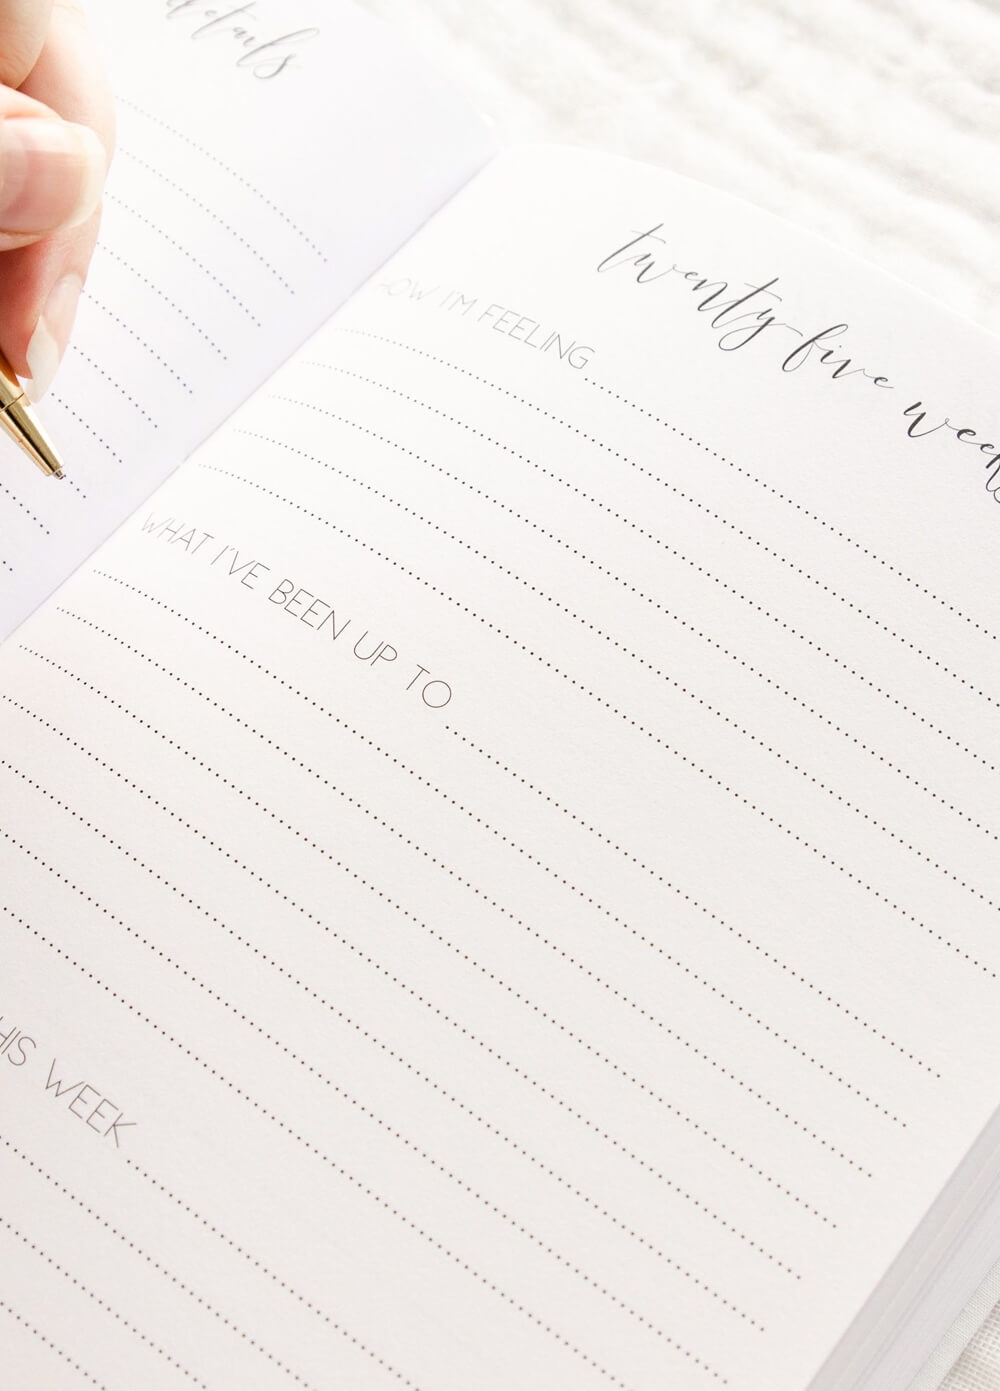 details
twenty-five weeks
HOW I'M FEELING
WHAT I'VE BEEN UP TO
THIS WEEK